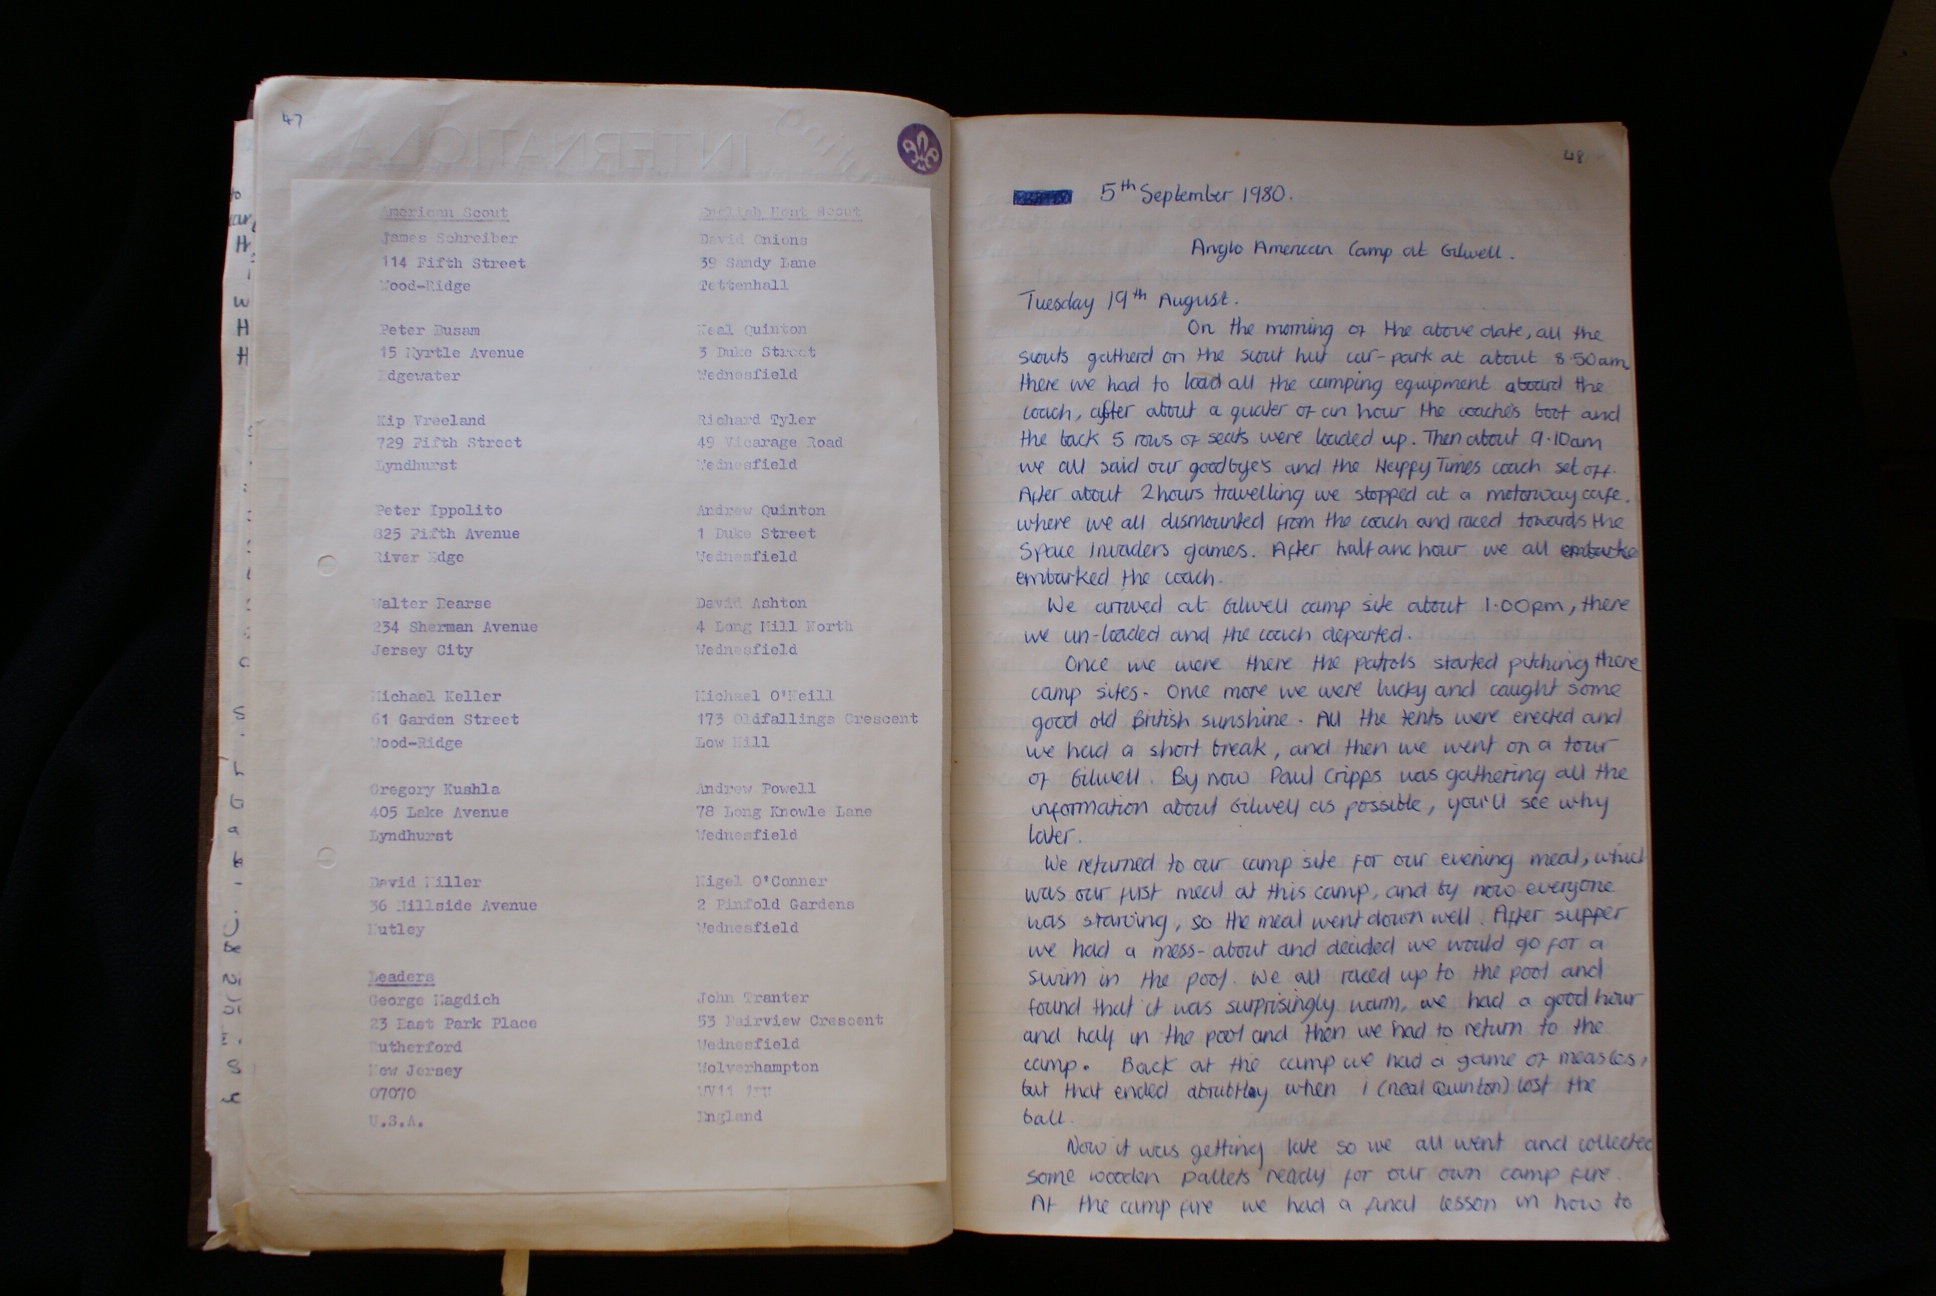 47
INTERNATIONA
American Scout English Host Scout
James Schreiber David Onions
114 Fifth Street 39 Sandy Lane
Wood-Ridge Tettenhall
Peter Busam Neal Quinton
15 Myrtle Avenue 3 Duke Street
Edgewater Wednesfield
Kip Vreeland Richard Tyler
729 Fifth Street 49 Vicarage Road
Lyndhurst Wednesfield
Peter Ippolito Andrew Quinton
825 Fifth Avenue 1 Duke Street
River Edge Wednesfield
Walter Dearse David Ashton
234 Sherman Avenue 4 Long Mill North
Jersey City Wednesfield
Michael Keller Michael O'Neill
61 Garden Street 173 Oldfallings Crescent
Wood-Ridge Low Hill
Gregory Kushla Andrew Powell
405 Lake Avenue 78 Long Knowle Lane
Lyndhurst Wednesfield
David Miller Nigel O'Conner
36 Hillside Avenue 2 Pinfold Gardens
Nutley Wednesfield
Leaders
George Magdich John Tranter
23 East Park Place 53 Fairview Crescent
Rutherford Wednesfield
New Jersey Wolverhampton
07070 WV11
U.S.A. England
48
5th September 1980.
Anglo American Camp at Gilwell.
Tuesday 19th August.
On the morning of the above date, all the
scouts gatherd on the scout hut car-park at about 8.50am
there we had to load all the camping equipment aboard the
coach, after about a quater of an hour the coaches boot and
the back 5 rows of seats were loaded up. Then about 9.10am
we all said our goodbye's and the Happy Times coach set off.
After about 2 hours travelling we stopped at a motorway cafe.
where we all dismounted from the coach and raced towards the
Space Invaders games. After half anc hour we all embarke
embarked the coach.
We arrived at Gilwell camp site about 1.00pm, there
we un-loaded and the coach departed.
Once we were there the patrols started pitching there
camp sites. Once more we were lucky and caught some
good old British sunshine. All the tents were erected and
we had a short break, and then we went on a tour
of Gilwell. By now Paul Cripps was gathering all the
information about Gilwell as possible, you'll see why
later.
We returned to our camp site for our evening meal, which
was our fust meal at this camp, and by now everyone
was starving, so the meal went down well. After supper
we had a mess-about and decided we would go for a
swim in the pool. We all raced up to the pool and
found that it was surprisingly warm, we had a good hour
and half in the pool and then we had to return to the
camp. Back at the camp we had a game of measles,
but that ended abrubtlay when i (neal Quinton) lost the
ball.
Now it was getting late so we all went and collected
some wooden pallets ready for our own camp fire.
At the camp fire we had a final lesson in how to